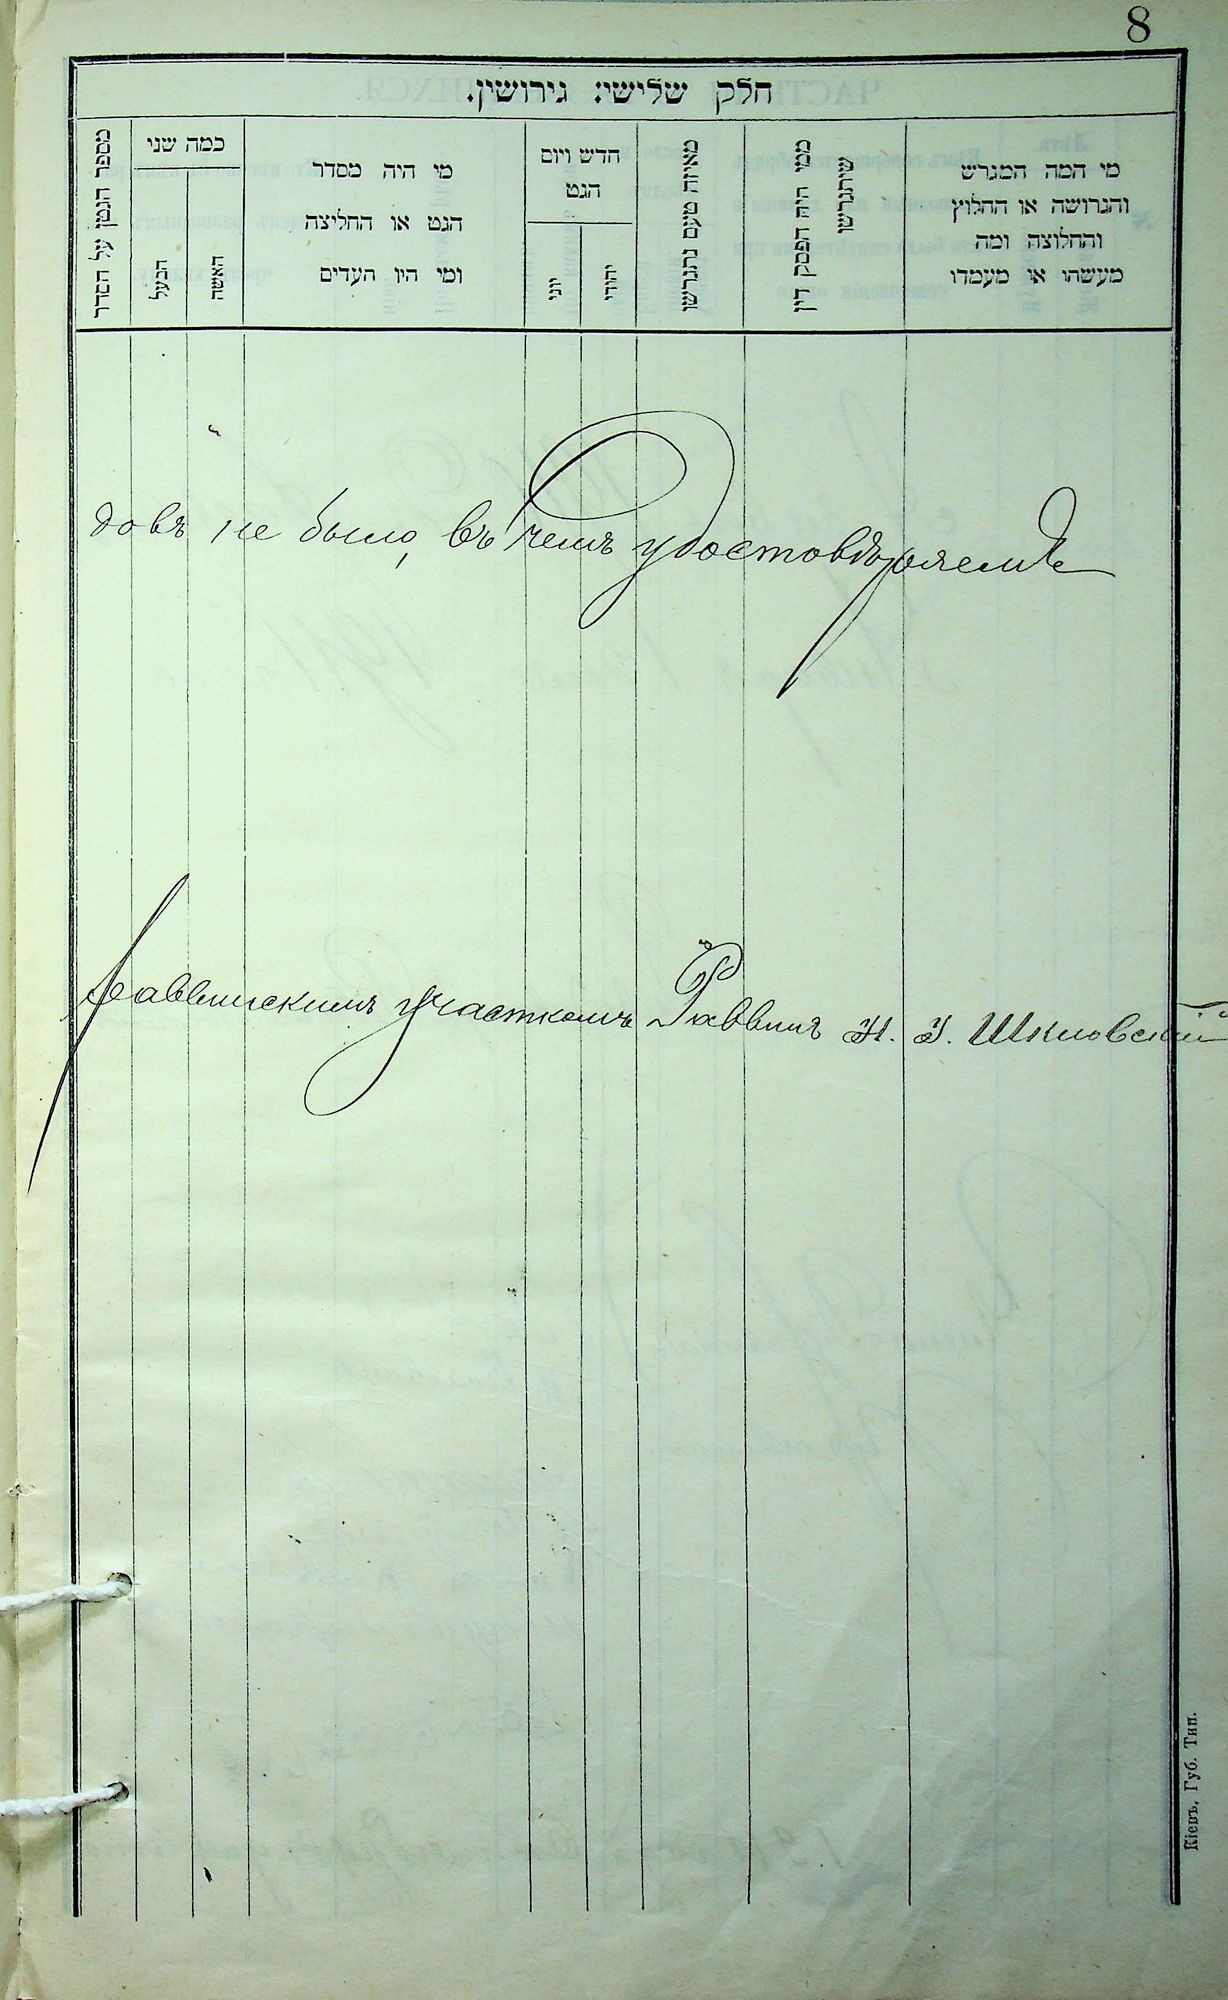 8
חלק שלישי: גירושין.
מי המה המגרש
והגרושה או החלוץ
והחלוצה ומה
מעשהו או מעמדו
ממי היה הפסק דין
שיתגרשו
מאיזה טעם נתגרשו
חדש ויום
הגט
יהודי
יוני
מי היה מסדר
הגט או החליצה
ומי היו העדים
כמה שני
האשה
הבעל
מספר הגטין על הסדר
довъ не было, въ чемъ удостовѣряемъ
Раввинскимъ участкомъ Раввинъ И. З. Шкловскій
Кіевъ, Губ. Тип.